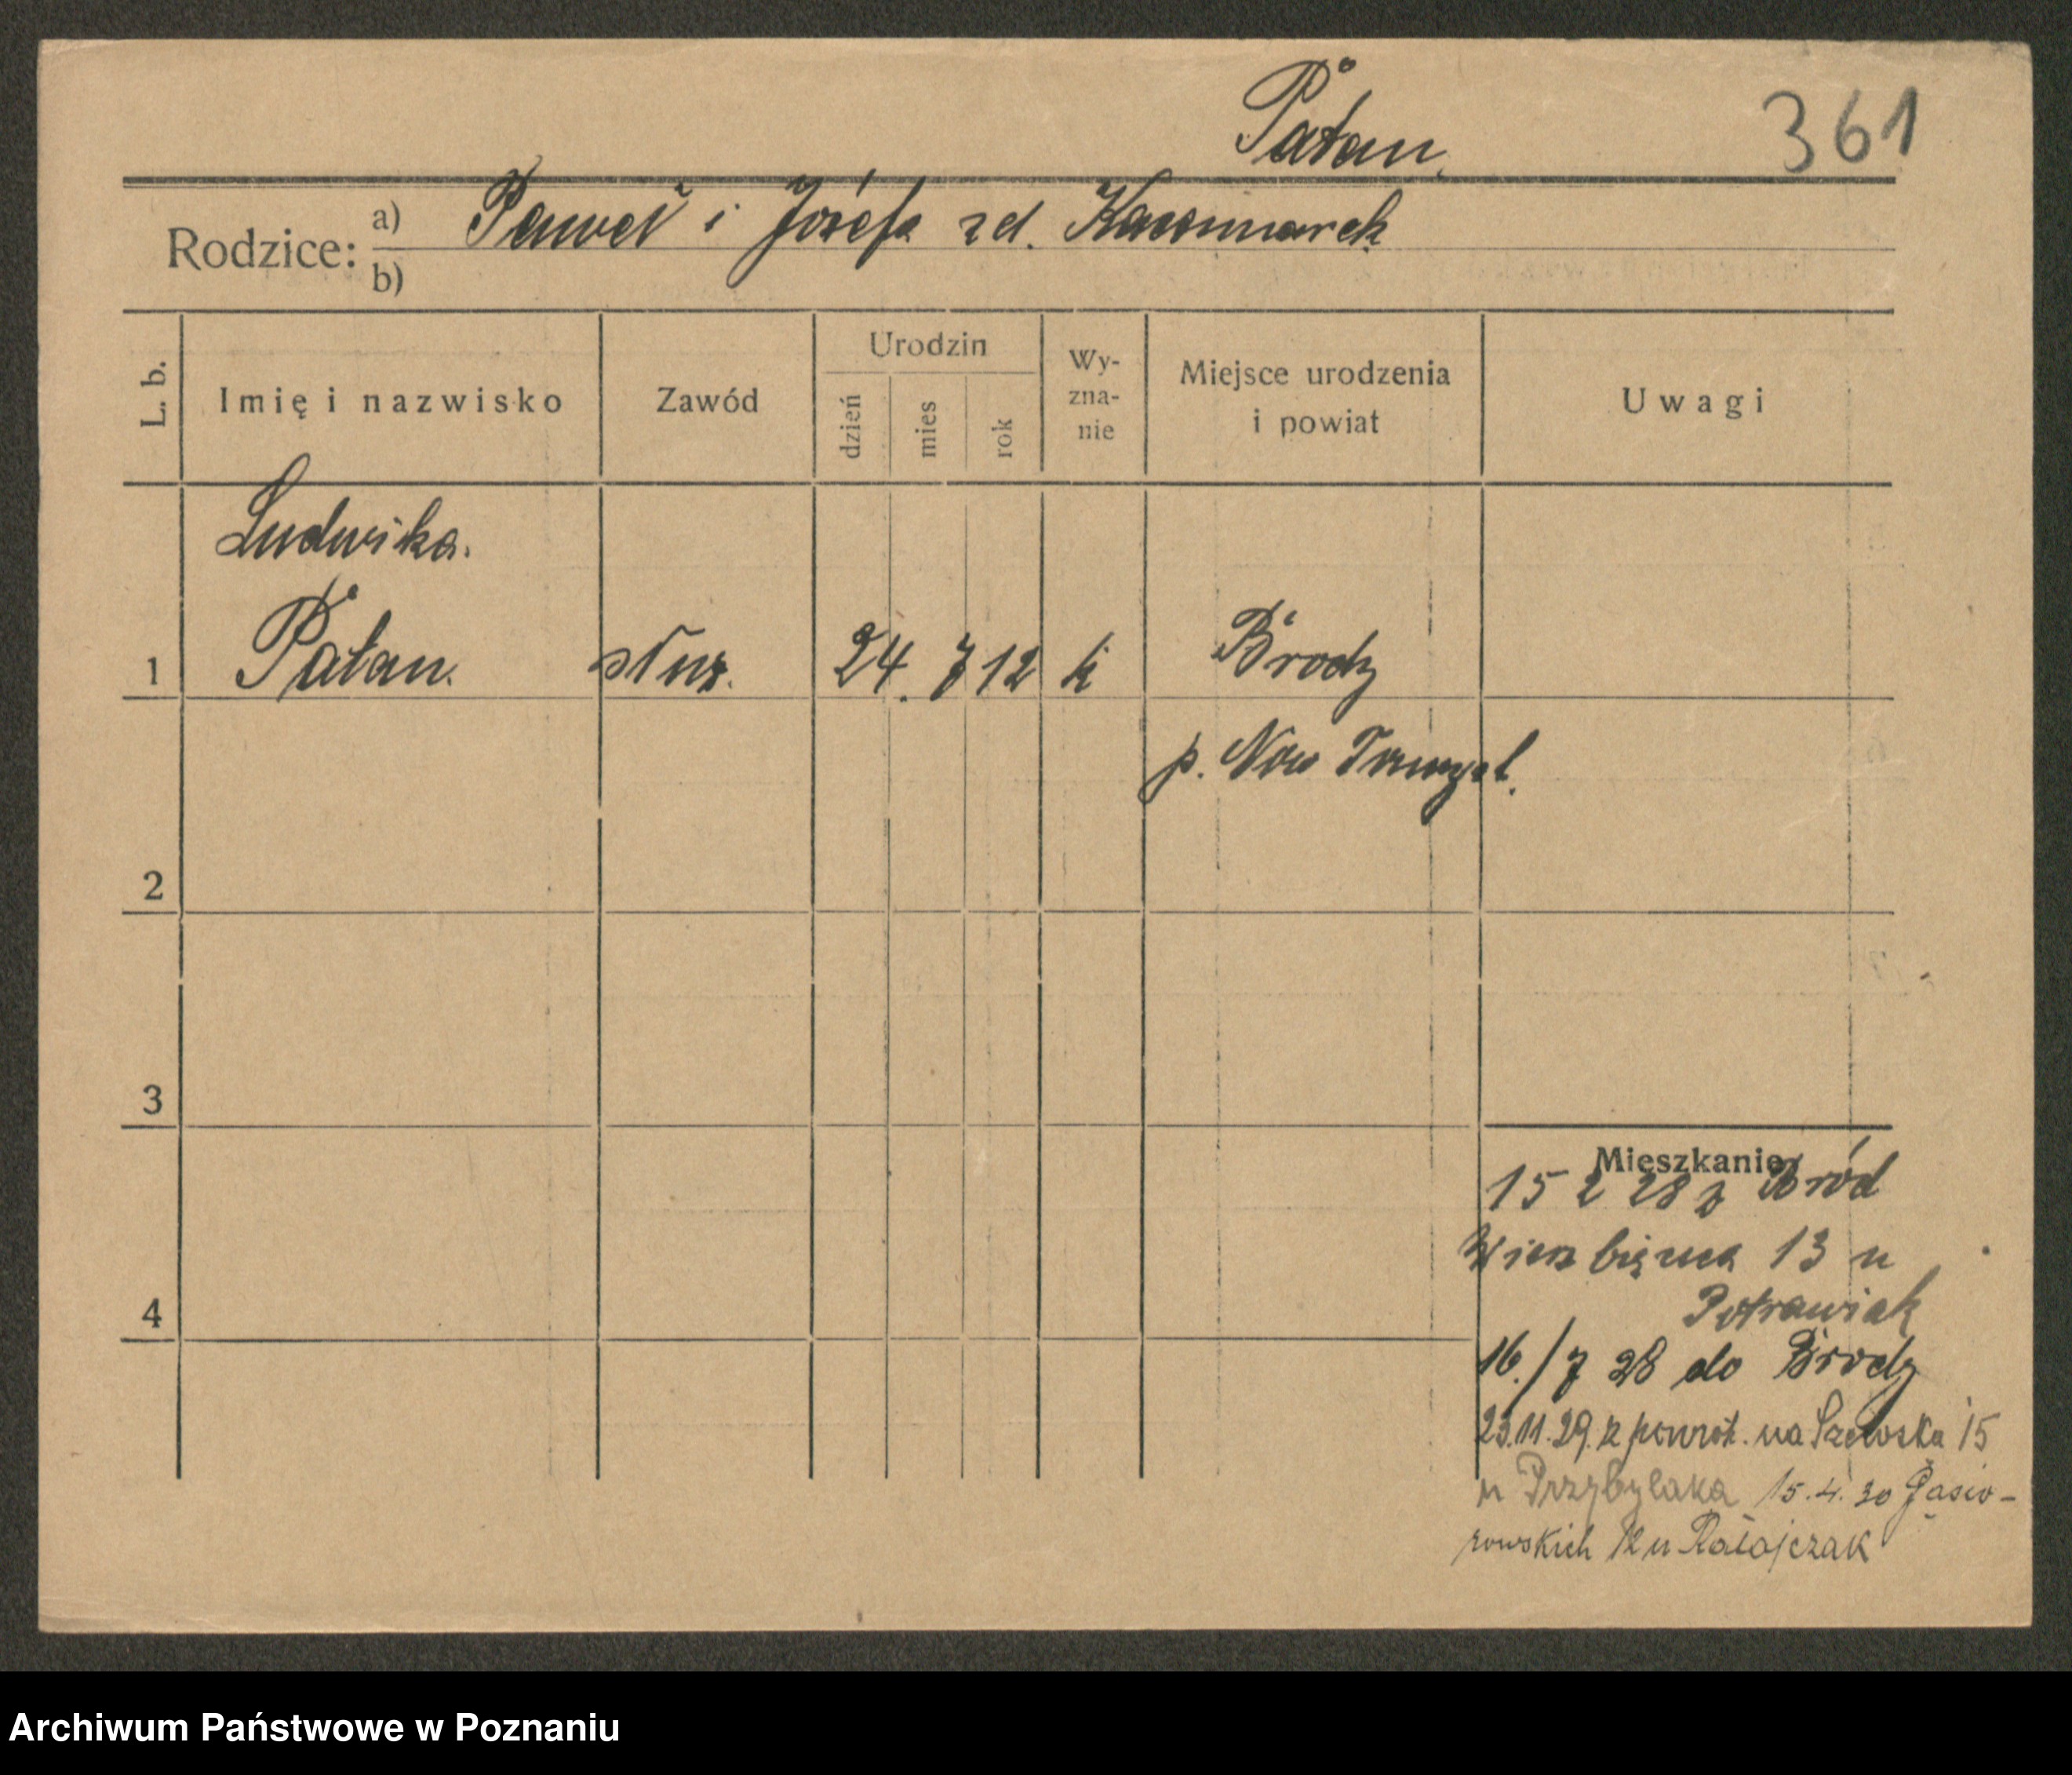 Pałan
361
Rodzice: a) Paweł i Józefa zd. Kaczmarek
b)
L. b. Imię i nazwisko Zawód Urodzin dzień mies rok Wy-zna-nie Miejsce urodzenia i powiat Uwagi
Ludwika.
1 Pałan. służ. 24. 7 12 k Brody
p. Now Tomyśl.
2
3
Mieszkanie
15 2 28 z Bród
Wierzbięcica 13 u
4 Potrawiak
16./7 28 do Brody
23.11.29. z powrot. na Szewska 15
u Przybylaka 15.4.30 Gąsio-
rowskich 12 u Ratajczak
Archiwum Państwowe w Poznaniu